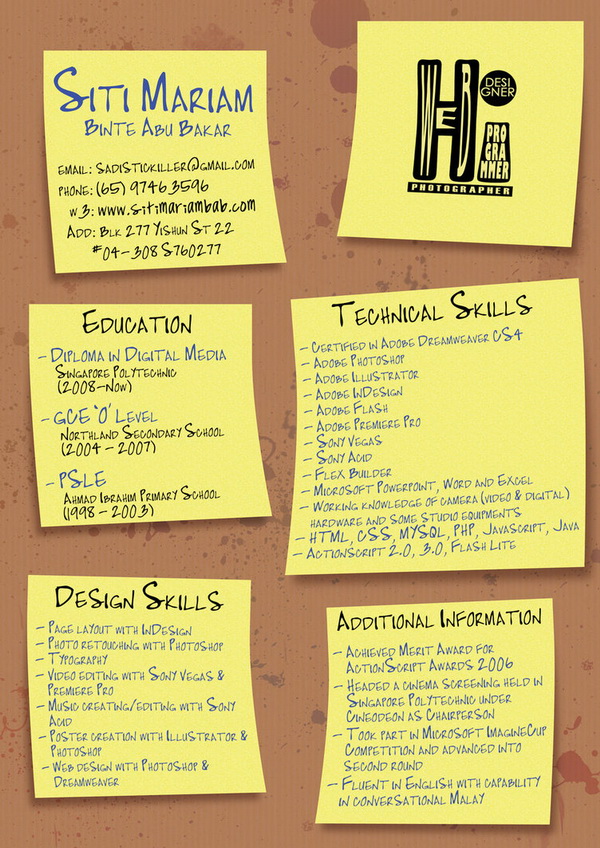 Siti Mariam
Binte Abu Bakar
email: sadistickiller@gmail.com
phone: (65) 9746 3596
w3: www.sitimariambab.com
Add: Blk 277 Yishun St 22
#04-308 S760277
HWEBR
DESI
GNER
PRO
GRA
MMER
PHOTOGRAPHER
Education
- Diploma in Digital Media
Singapore Polytechnic
(2008-Now)
- GCE 'O' Level
Northland Secondary School
(2004 - 2007)
- PSLE
Ahmad Ibrahim Primary School
(1998 - 2003)
Technical Skills
- Certified in Adobe Dreamweaver CS4
- Adobe Photoshop
- Adobe Illustrator
- Adobe InDesign
- Adobe Flash
- Adobe Premiere Pro
- Sony Vegas
- Sony Acid
- Flex Builder
- Microsoft Powerpoint, Word and Excel
- Working knowledge of camera (video & digital)
hardware and some studio equipments
- HTML, CSS, MYSQL, PHP, Javascript, Java
- ActionScript 2.0, 3.0, Flash Lite
Design Skills
- Page layout with InDesign
- Photo retouching with Photoshop
- Typography
- Video editing with Sony Vegas &
Premiere Pro
- Music creating/editing with Sony
Acid
- Poster creation with Illustrator &
Photoshop
- Web design with Photoshop &
Dreamweaver
Additional Information
- Achieved Merit Award for
ActionScript Awards 2006
- Headed a cinema screening held in
Singapore Polytechnic under
Cineodeon as Chairperson
- Took part in Microsoft ImagineCup
Competition and advanced into
second round
- Fluent in English with capability
in conversational Malay